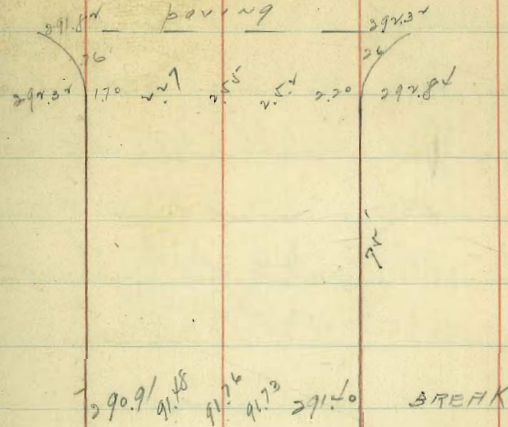 291.82 paving 292.32
26 26
292.32 1.70 2.27 2.55 2.52 2.20 292.84
75'
290.91 91.48 91.76 91.73 291.40 BREAK